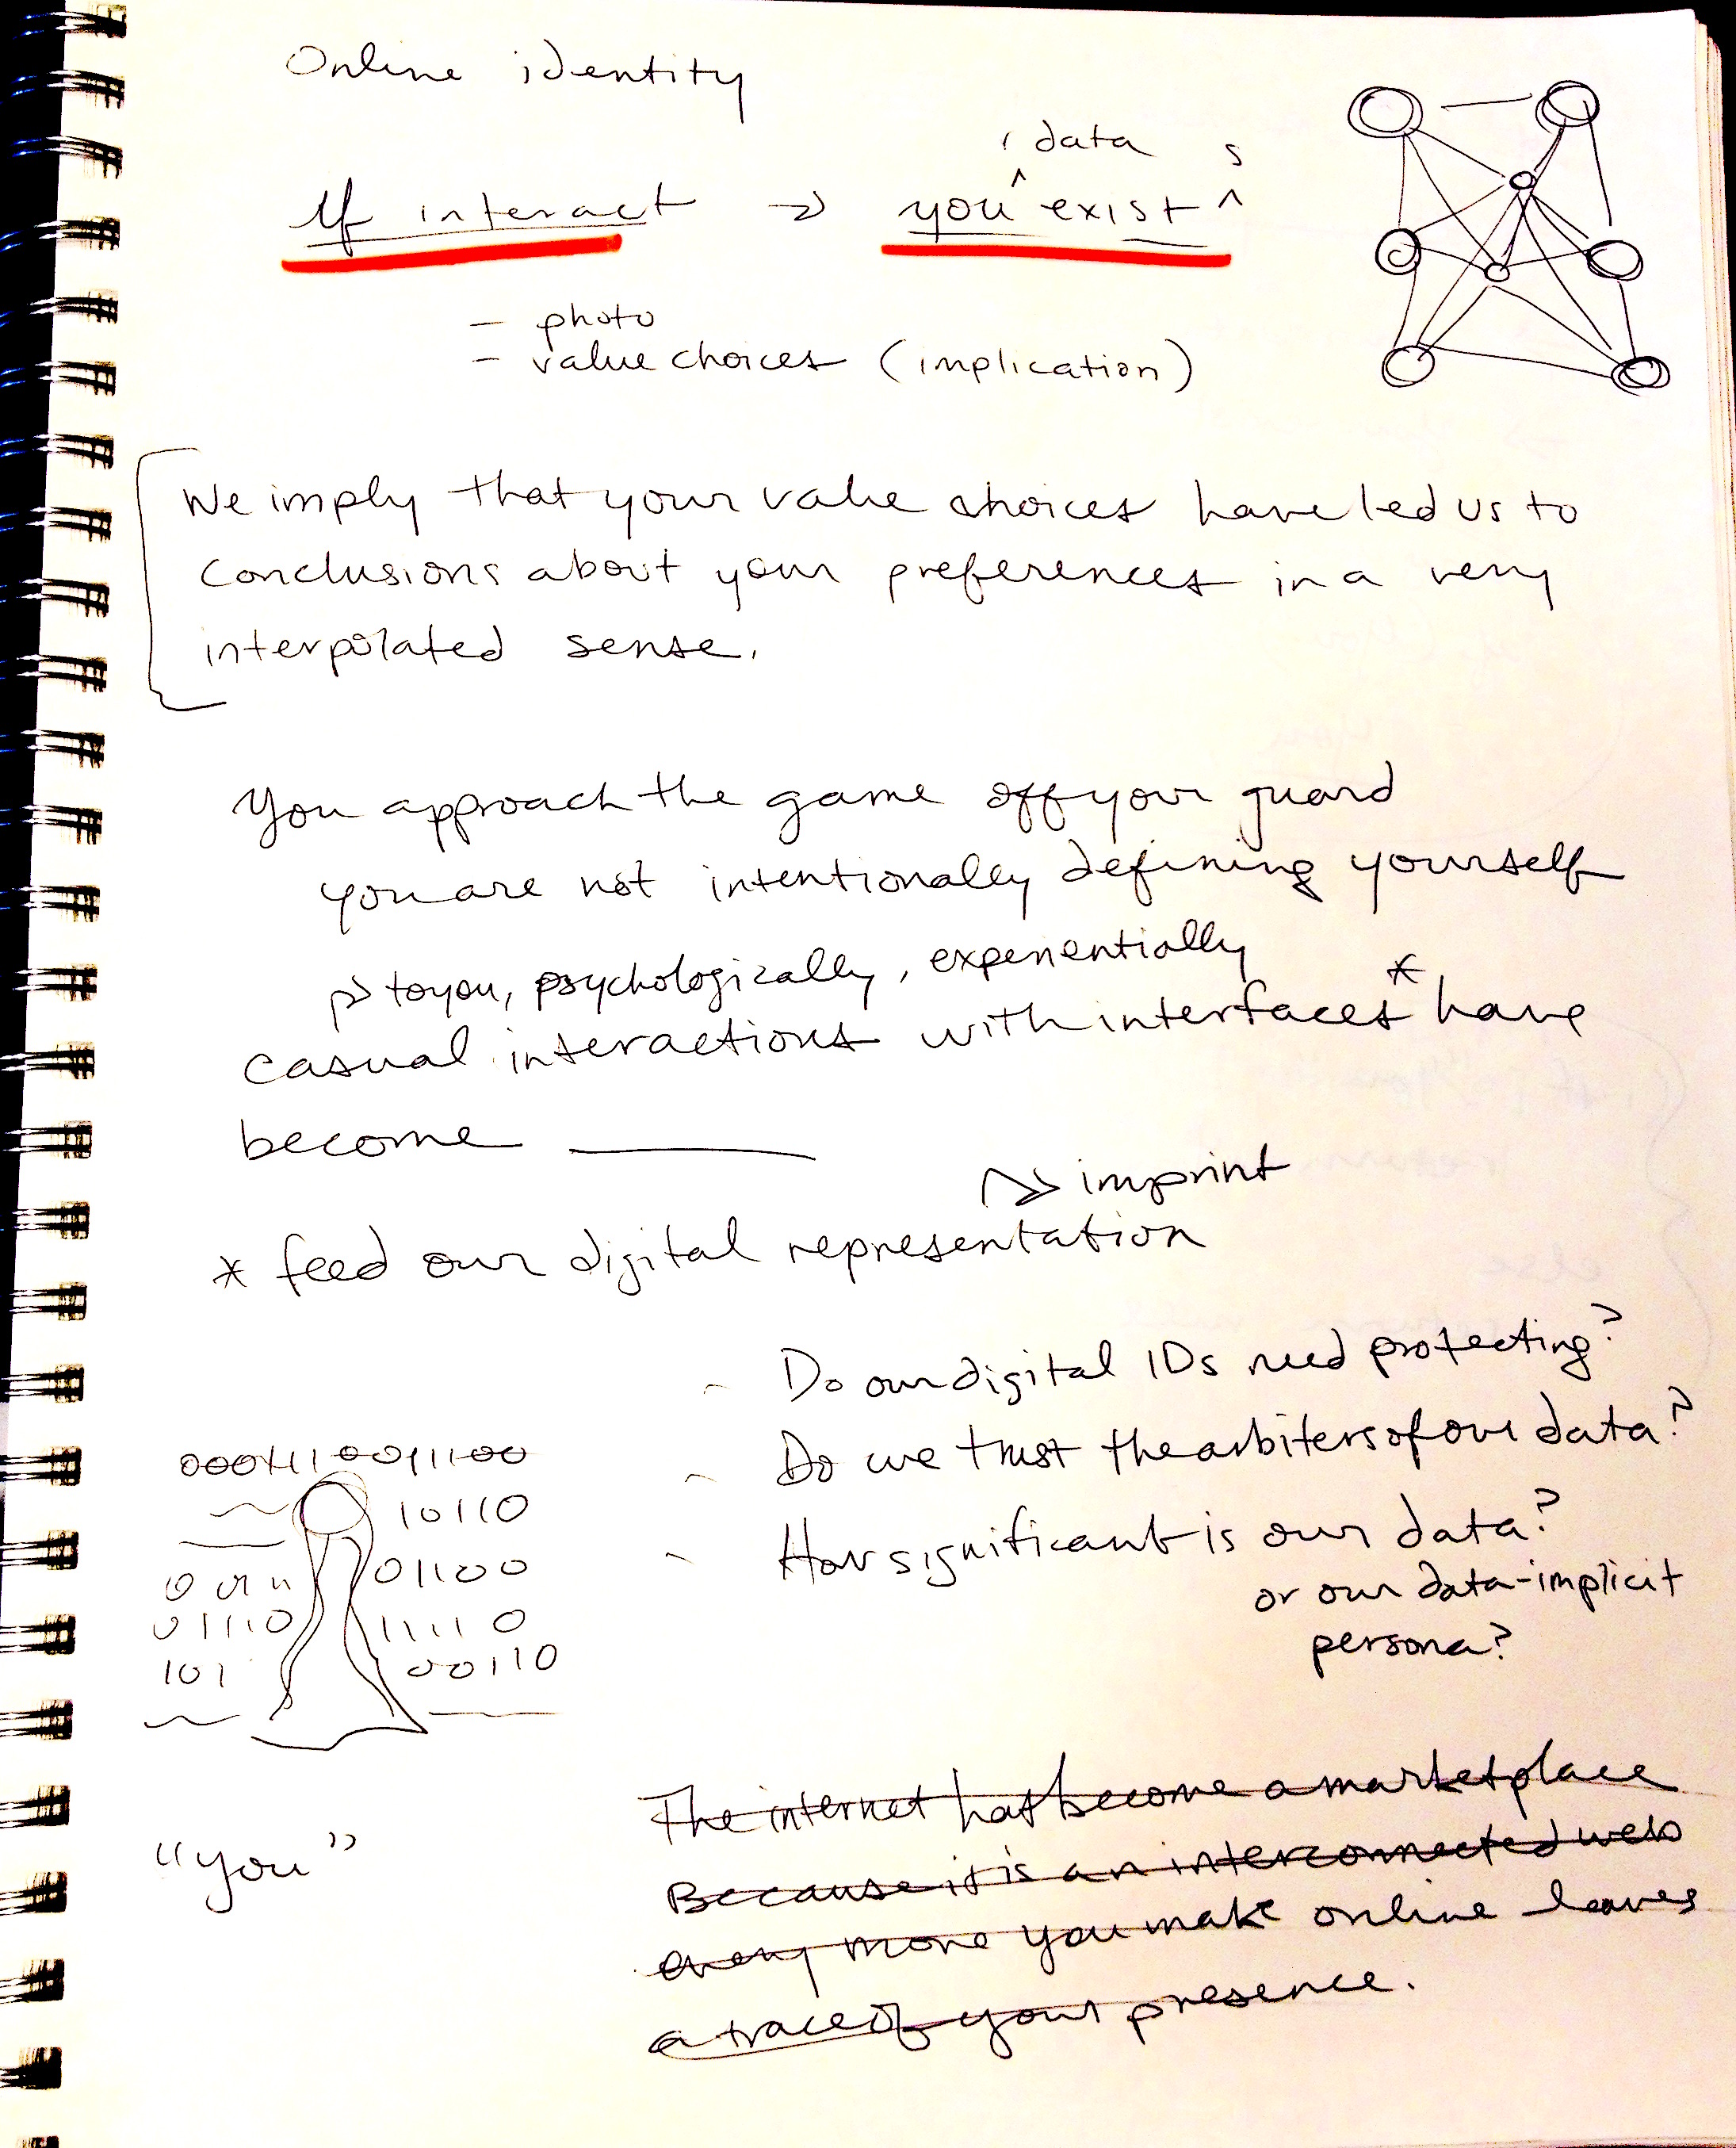 Online identity
' data s
If interact → you ^ exist ^
- photo
- value choices (implication)
We imply that your value choices have led us to
conclusions about your preferences in a very
interpolated sense.
You approach the game off your guard
you are not intentionally defining yourself
→ to you, psychologically, experientially
casual interactions with interfaces * have
become ______
→ imprint
* feed our digital representation
- Do our digital IDs need protecting?
- Do we trust the arbiters of our data?
- How significant is our data?
or our data-implicit
persona?
10110
01100
01110 11110
101 00110
"you"
The internet has become a marketplace
Because it is an interconnected web
every move you make online leaves
a trace of your presence.